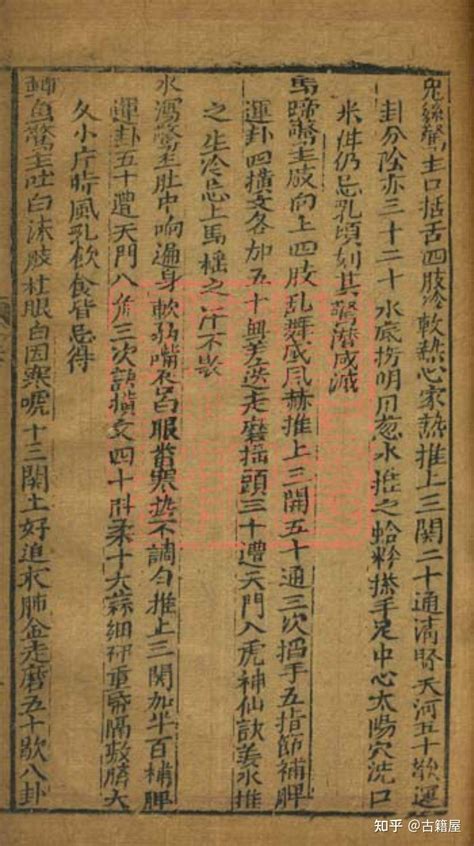 兔絲驚主口括舌四肢冷軟熱心家熱推上三関二十通清腎天河五十歇運
卦分陰亦三十二十水底撈明月葱水推之蛤粉搽手足中心太陽穴洗口
米泔仍忌乳頃刻其驚潛成滅
馬蹄驚主肢向上四肢乱舞感風赫推上三関五十通三次掐手五指節補脾
運卦四横文各加五十走磨揺頭三十遭天門入虎神仙訣姜水推
之生冷忌上馬揺之汗不
水瀉驚主肚中响遍身軟弱嘴唇白眼嘗寒热不調匀推上三関加半百補脾
運卦五十遭天門八三次訣横文四十柔十大蒜細研重隔敷臍大
久小片時風乳飲食皆忌得
魚驚主吐白沫肢杜眼白因寒唬十三関土好追求肺金走磨五十歇八卦
知乎 @古籍屋